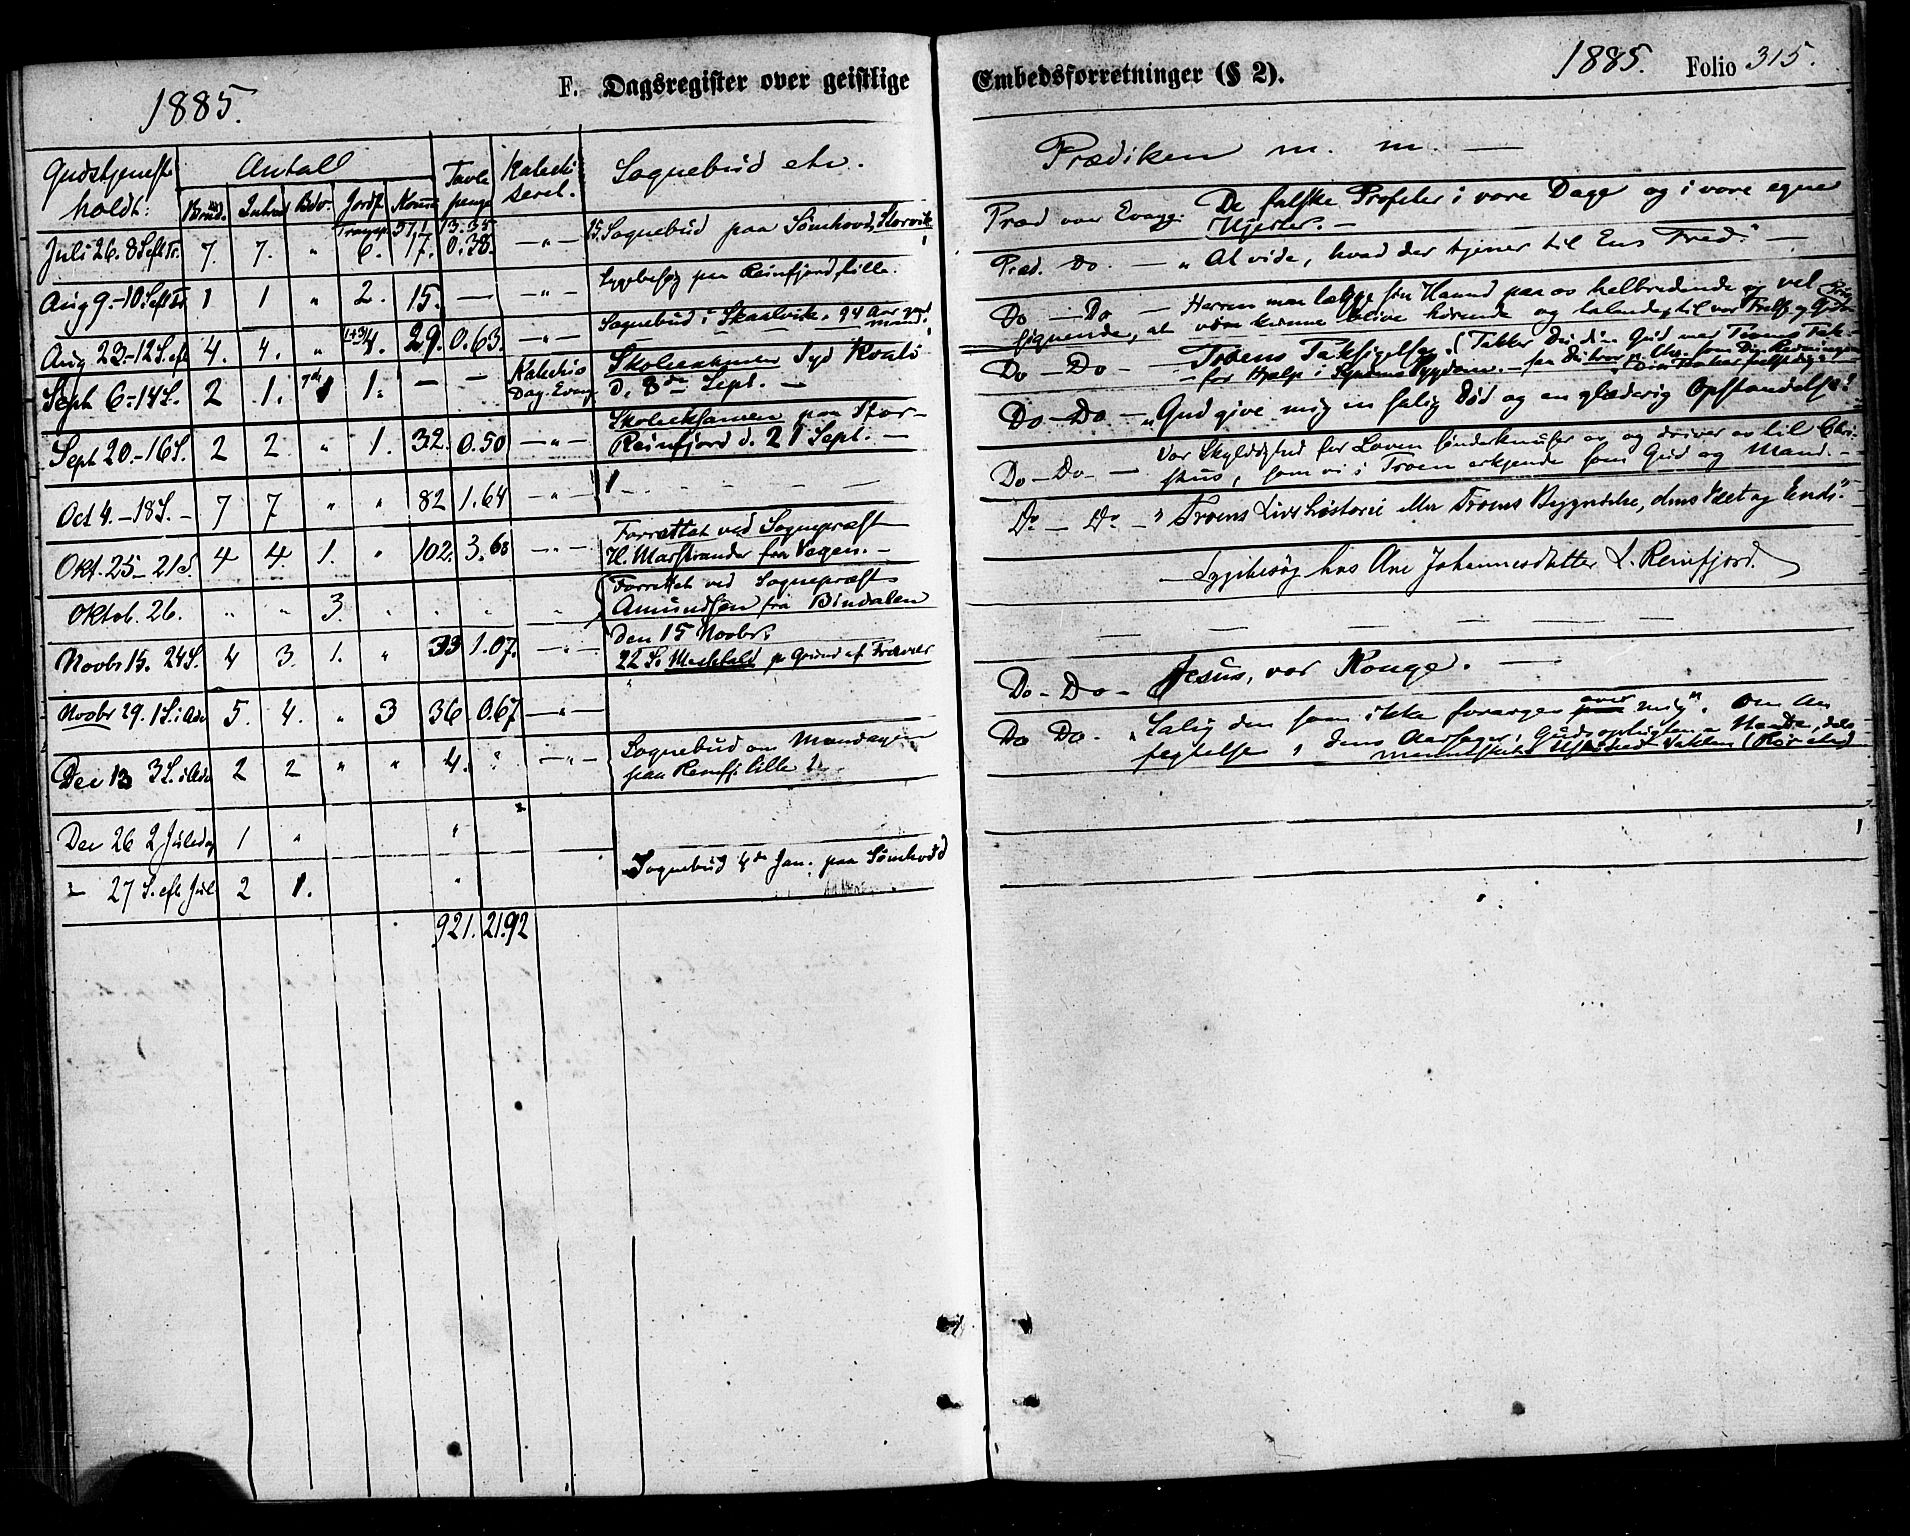 1885.
F. Dagsregister over geistlige Embedsforretninger (§ 2).
1885. Folio 315.
Gudstjeneste holdt:
Antal
Tavle penge
Katechiseret.
Sognebud etc.
Prædiken m. m. —
Introd Jordf. Komm
Transp. 571. 13.35
Juli 26. 8 S. eft Tr. 7. 7. " 6. 17. 0.38. — " — 15. Sognebud paa Sømhovd, Storvik
Præd over Evang: De falske Profeter i vore Dage og i vore egne
Hjerter. —
Aug 9. - 10 S. eft Tr 1 1 " 2. 15. — — " — Sygebesøg paa Reinfjord, lille.
Præd. Do. — " At vide, hvad der tjener til Ens Fred." —
Aug 23. - 12 S. eft 4. 4. " (1+3) 4. 29. 0.63. — " — Sognebud i Skarlvik. 94 Aar gml
mand.
Do — Do — Herren maa lægge sin Haand paa os helbredende og vel
signende, at være kunne blive hørende og talende til vor Frelse og Guds
Sept 6. - 14 S. 2 1. 1 1. — — Katechis Dag. Evang. Skoleeksamen Syd Kvalö
d. 8de Sept. —
Do — Do — Troens Taksigelse.
for Hjælp i
Sept 20. - 16 S. 2 2. " 1. 32. 0.50 — " — Skoleeksamen paa Stor-
Reinfjord d. 21 Sept. —
Do — Do — "Gud give mig en salig Død og en glæderig Opstandelse!"
Oct 4. - 18 S. - 7 7 " " 82 1.64 — " —
Do — Do — Vor Skyldighed for Loven sønderknuser os og driver os til Chri-
stus, som vi i Troen erkjende som Gud og Mand. —
Okt. 25 - 21 S. 4 4. 1. " 102. 3.68 — " — Forrettet ved Sognepræst
H. Marstrander fra Vegen. —
Do — Do — " Troens Livshistorie eller Troens Begyndelse, dens Væxt og Ende."
Oktob. 26. " " 3. " " " " Forrettet ved Sognepræst
Amundsen fra Bindalen
Sygebesøg hos Ane Johannesdatter L. Reinfjord.
Novbr 15. 24 S. 4 3. 1. " 33 1.07. — " — Den 15 Novbr.
22 S. Messefald p. Grund af Fravær
— — — — — — —
Novbr 29. 1 S. i Adv 5. 4. " 3 36 0.67 — " —
Do - Do - Jesus, vor Konge. —
Dec 13 3 S. i Adv 2 2 " " 4. " — " — Sognebud om Mandagen
paa Reinfj. lille
Do Do. - "Salig den som ikke forarges over mig". Om An
fegtelse, dens Aarsager,
Dec 26 2 Juledag 1 " "
- 27 S. eft Jul 2 1. " Sognebud 4de Jan. paa Sømhovd
921. 21.92